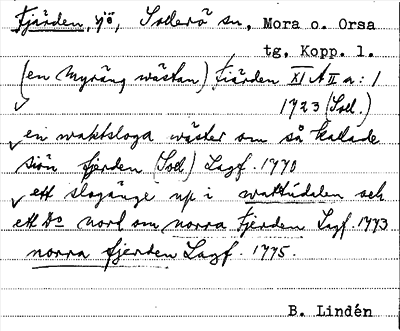 Fjärden, sjö, Sollerö sn, Mora o. Orsa
tg, Kopp. l.
(en Myräng wästan) Fiärden XI A II a: 1
1723 (Soll.)
en waktsloga wäster om så kallade
siön fjerden (Soll) Lagf. 1770
ett slogänge up i wattudalen och
ett Do norl om norra fjerden Lagf. 1773
norra fjerden Lagf. 1775.
B. Lindén